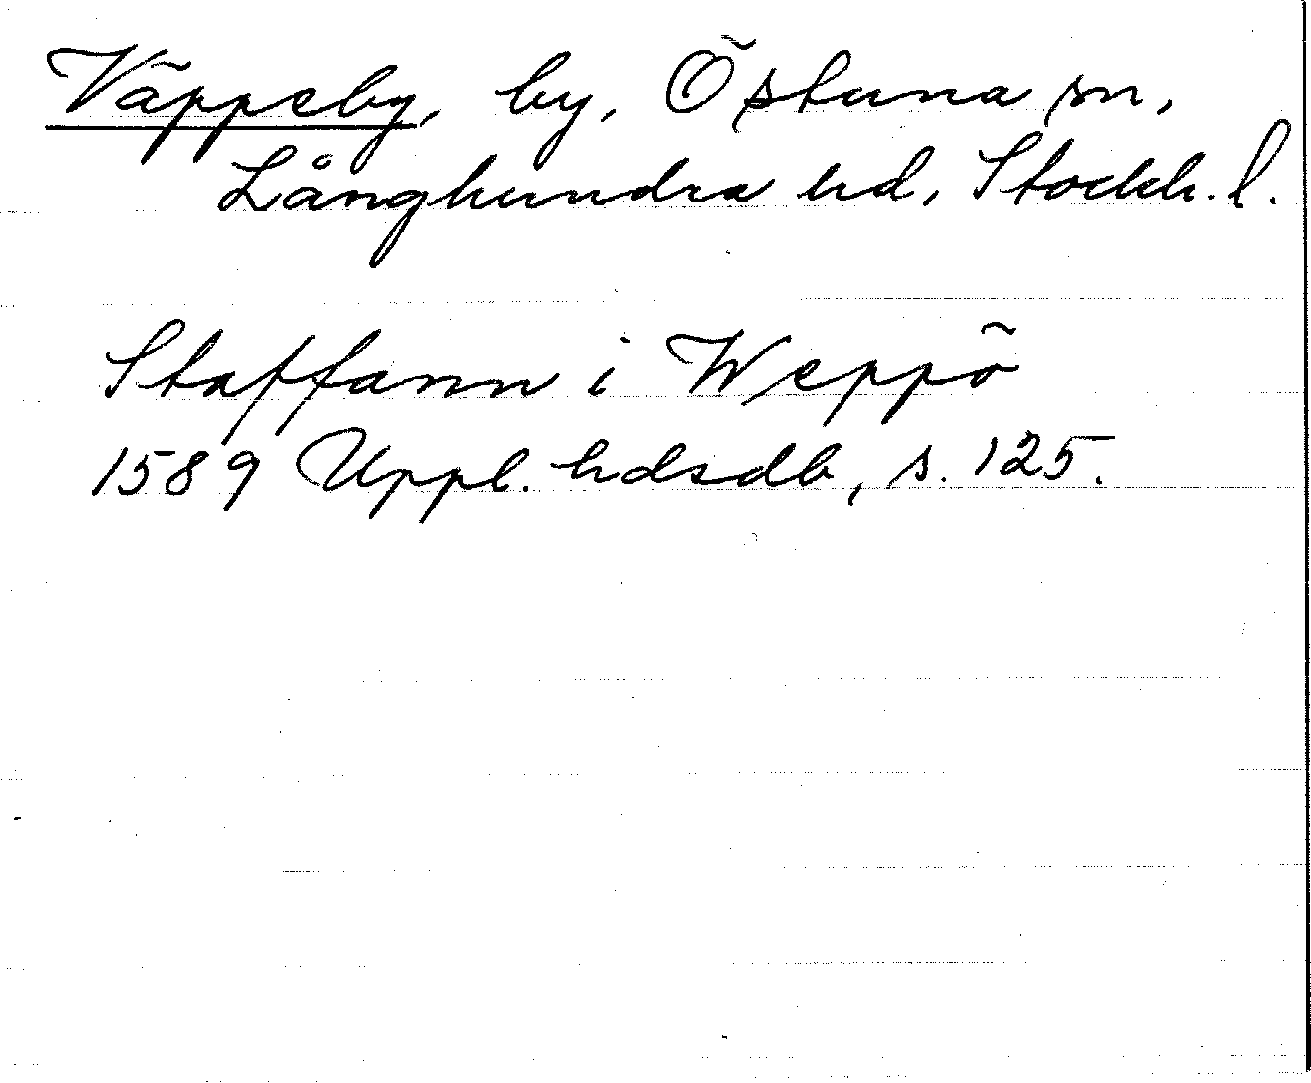 Väppeby, by, Östuna sn,
Långhundra hd, Stockh. l.
Staffann i Weppö
1589 Uppl. hdsdb, s. 125.